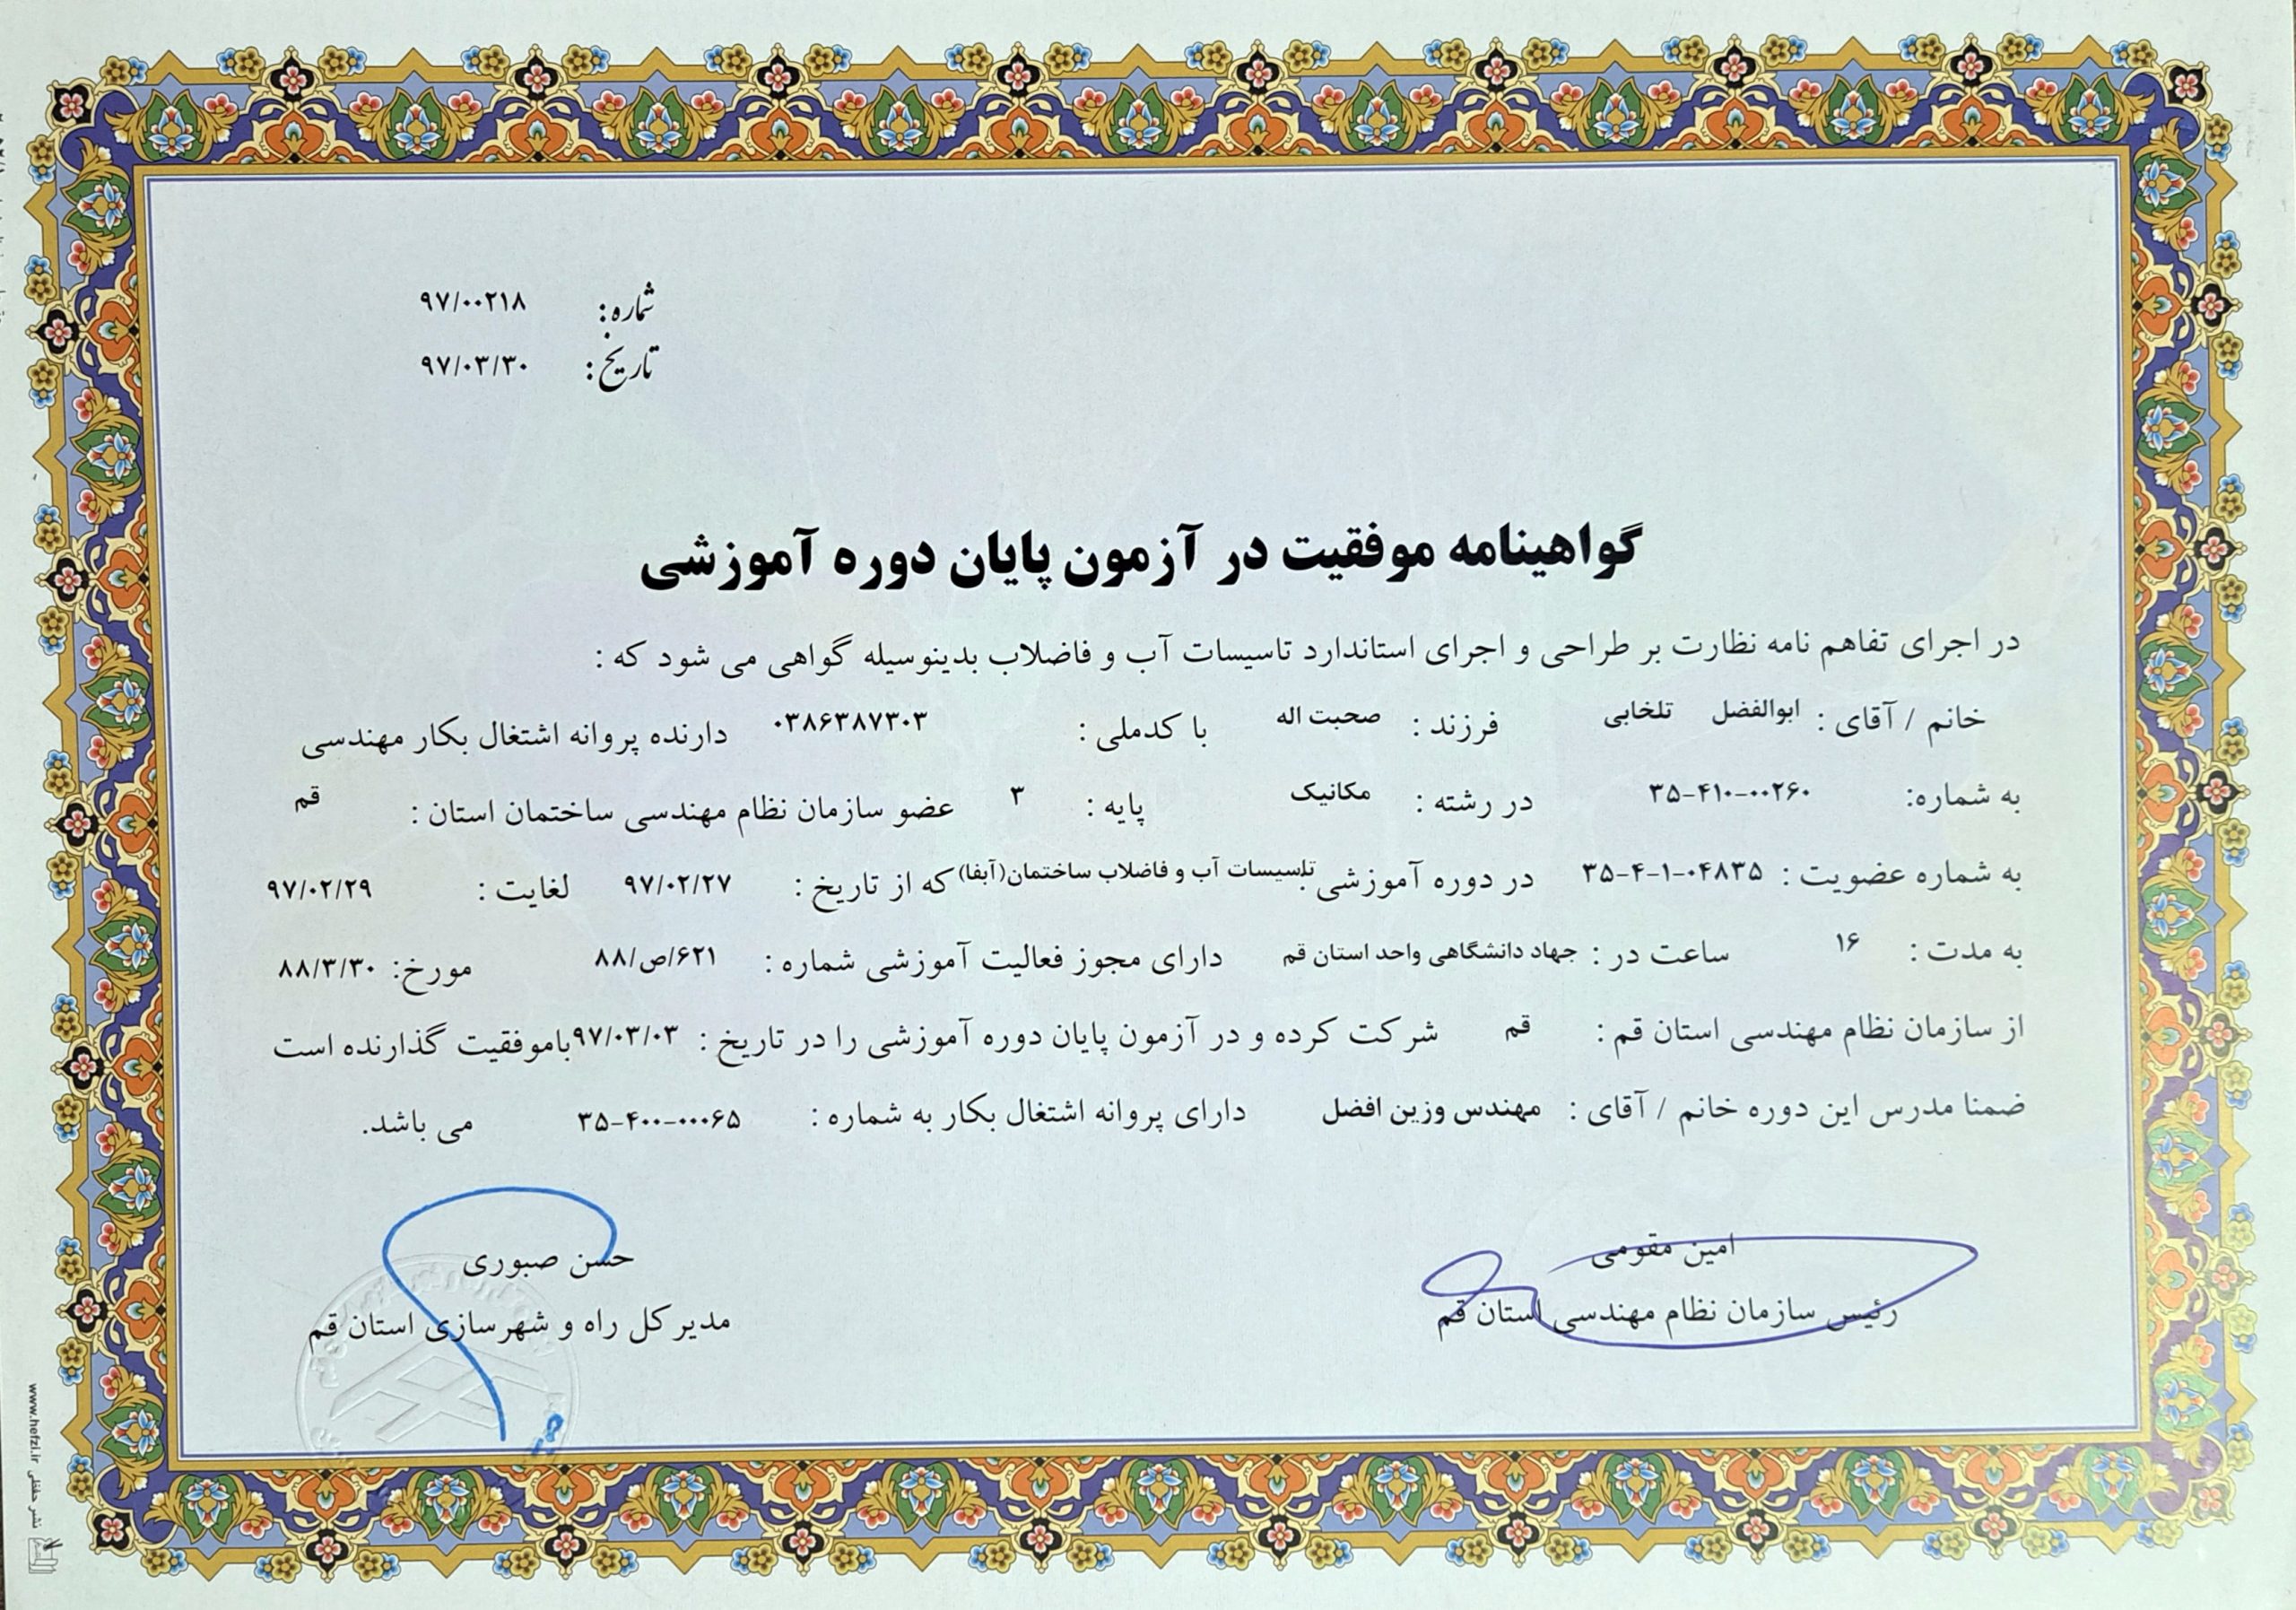 شماره: ۹۷/۰۰۲۱۸
تاریخ: ۹۷/۰۳/۳۰
گواهینامه موفقیت در آزمون پایان دوره آموزشی
در اجرای تفاهم نامه نظارت بر طراحی و اجرای استاندارد تاسیسات آب و فاضلاب بدینوسیله گواهی می شود که :
خانم / آقای : ابوالفضل تلخابی فرزند : صحبت اله با کدملی : ۰۳۸۶۳۸۷۳۰۳ دارنده پروانه اشتغال بکار مهندسی
به شماره: ۳۵-۴۱۰-۰۰۲۶۰ در رشته : مکانیک پایه : ۳ عضو سازمان نظام مهندسی ساختمان استان : قم
به شماره عضویت : ۳۵-۴-۱-۰۴۸۳۵ در دوره آموزشی : تاسیسات آب و فاضلاب ساختمان(آبفا) که از تاریخ : ۹۷/۰۲/۲۷ لغایت : ۹۷/۰۲/۲۹
به مدت : ۱۶ ساعت در : جهاد دانشگاهی واحد استان قم دارای مجوز فعالیت آموزشی شماره : ۸۸/ص/۶۲۱ مورخ: ۸۸/۳/۳۰
از سازمان نظام مهندسی استان قم : قم شرکت کرده و در آزمون پایان دوره آموزشی را در تاریخ : ۹۷/۰۳/۰۳ باموفقیت گذارنده است
ضمنا مدرس این دوره خانم / آقای : مهندس وزین افضل دارای پروانه اشتغال بکار به شماره : ۳۵-۴۰۰-۰۰۰۶۵ می باشد.
امین مقومی
رئیس سازمان نظام مهندسی استان قم
حسن صبوری
مدیر کل راه و شهرسازی استان قم
www.hefzi.ir نشر حفظی